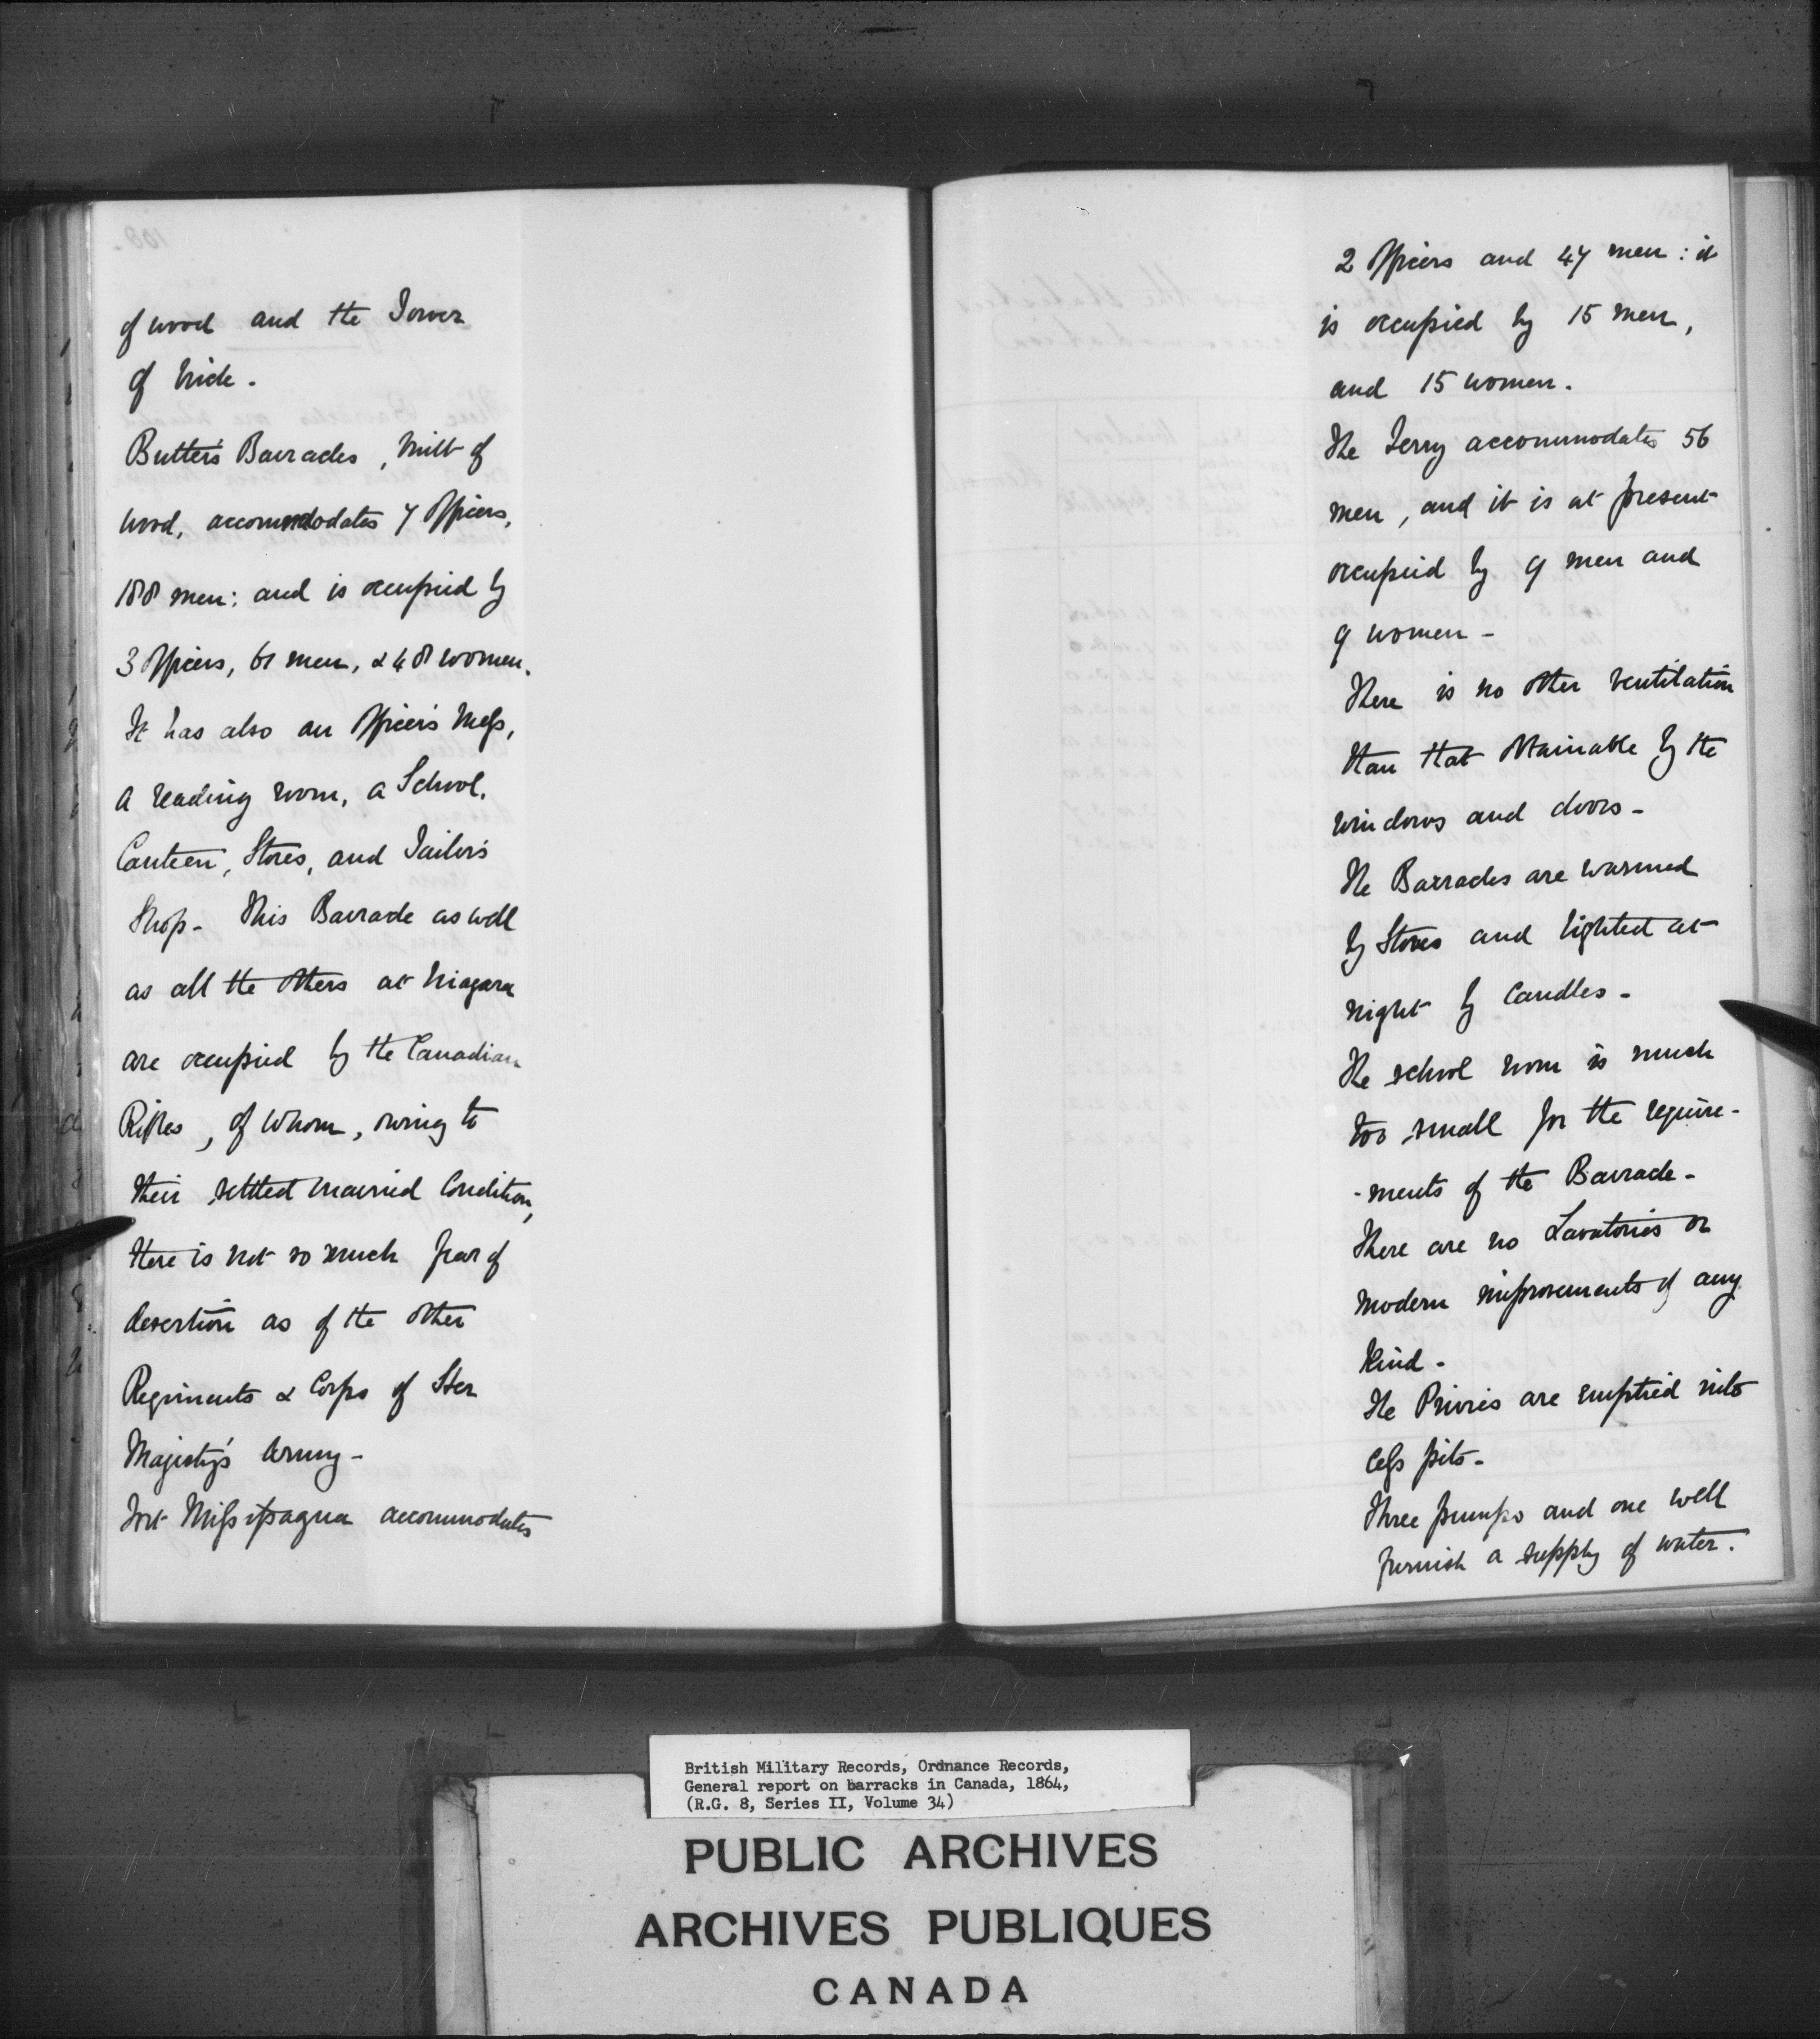 of wood and the Tower
of brick.
Butler's Barracks, built of
wood, accommodates 7 Officers,
188 men: and is occupied by
3 Officers, 61 men, & 48 women.
It has also an Officer's Mess,
a reading room, a School,
Canteen, Stores, and Tailor's
Shop. This Barrack as well
as all the others at Niagara
are occupied by the Canadian
Rifles, of whom, owing to
their settled married condition,
there is not so much fear of
desertion as of the other
Regiments & Corps of Her
Majesty's Army -
Fort Missisagua accommodates
2 Officers and 47 men: it
is occupied by 15 men,
and 15 women.
The Ferry accommodates 56
men, and it is at present
occupied by 9 men and
9 women -
There is no other ventilation
than that obtainable by the
windows and doors -
The Barracks are warmed
by Stoves and lighted at
night by Candles -
The school room is much
too small for the require-
-ments of the Barrack -
There are no Lavatories or
modern improvements of any
kind -
The Privies are emptied into
cess pits -
Three pumps and one well
furnish a supply of water.
British Military Records, Ordnance Records,
General report on barracks in Canada, 1864,
(R.G. 8, Series II, Volume 34)
PUBLIC ARCHIVES
ARCHIVES PUBLIQUES
CANADA